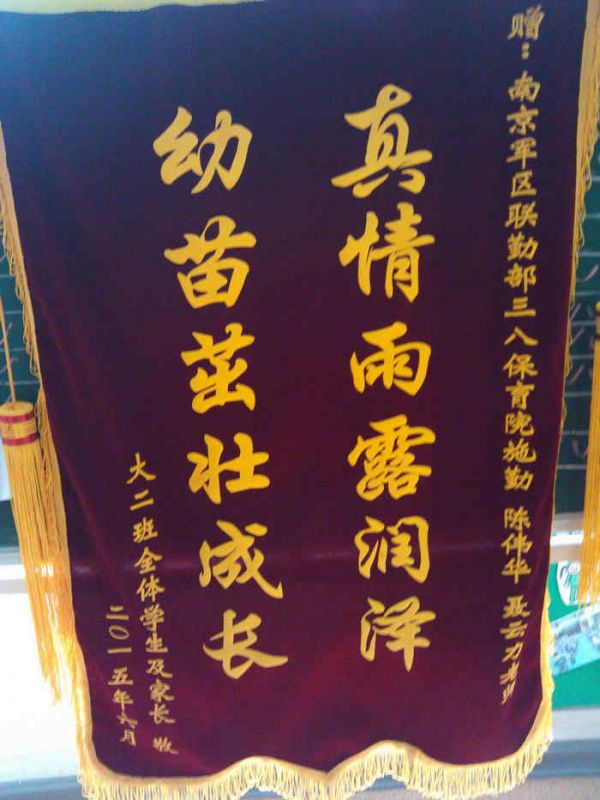 赠：南京军区联勤部三八保育院施勤 陈伟华 聂云力老师
真情雨露润泽
幼苗茁壮成长
大二班全体学生及家长 敬
二〇一五年六月